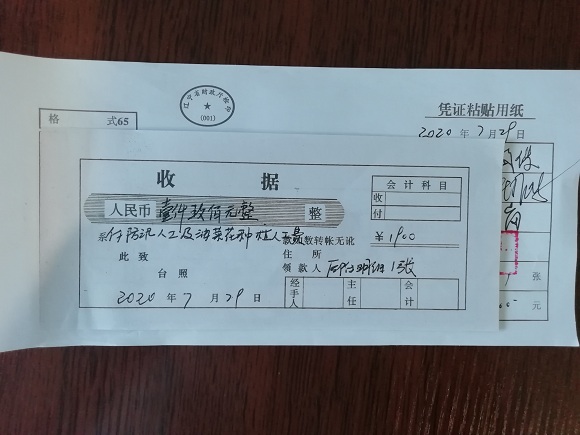 辽宁省财政厅监制
(001)
格 式65
凭证粘贴用纸
2020年7月29日
收 据
会计科目
人民币 壹仟玖佰元整 整
收
付
系付防汛人工及油菜花种植人工费
款数转帐无讹
¥1900
此致
住所
台照
领款人 后附明细1张
2020年7月29日
经手人
主任
会计
张
元